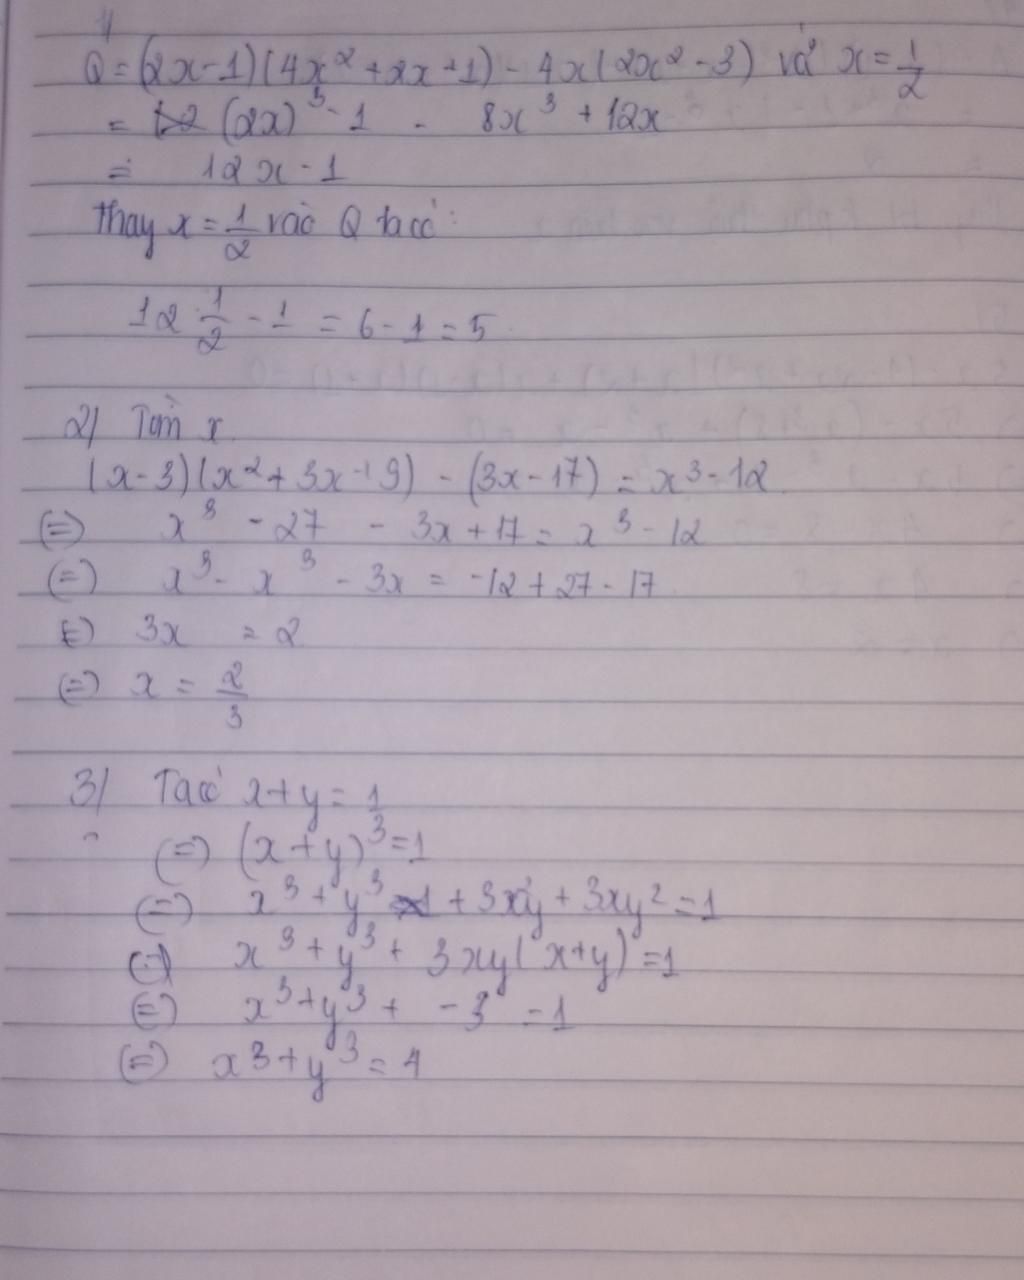 1/
Q = (2x-1)(4x² + 2x + 1) - 4x(2x² - 3) và x = 1/2
= (2x)³ - 1 - 8x³ + 12x
= 12x - 1
Thay x = 1/2 vào Q ta có:
12 . 1/2 - 1 = 6 - 1 = 5
2/ Tìm x
(x-3)(x² + 3x + 9) - (3x - 17) = x³ - 12
(=) x³ - 27 - 3x + 17 = x³ - 12
(=) x³ - x³ - 3x = -12 + 27 - 17
(=) 3x = 2
(=) x = 2/3
3/ Ta có x + y = 1
(=) (x + y)³ = 1
(=) x³ + y³ + 3x²y + 3xy² = 1
(=) x³ + y³ + 3xy(x+y) = 1
(=) x³ + y³ + - 3 = 1
(=) x³ + y³ = 4